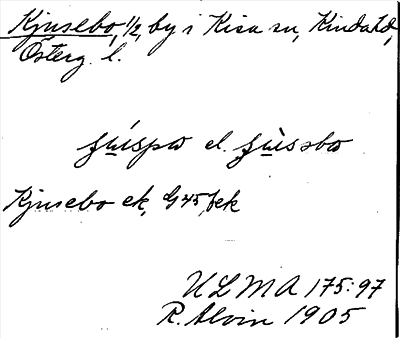 Kjusebo, 1/2, by i Kisa sn, Kinda hd,
Österg. l.
el.
Kjusebo ek, G 45, jek
ULMA 175:97
R. Alvin 1905